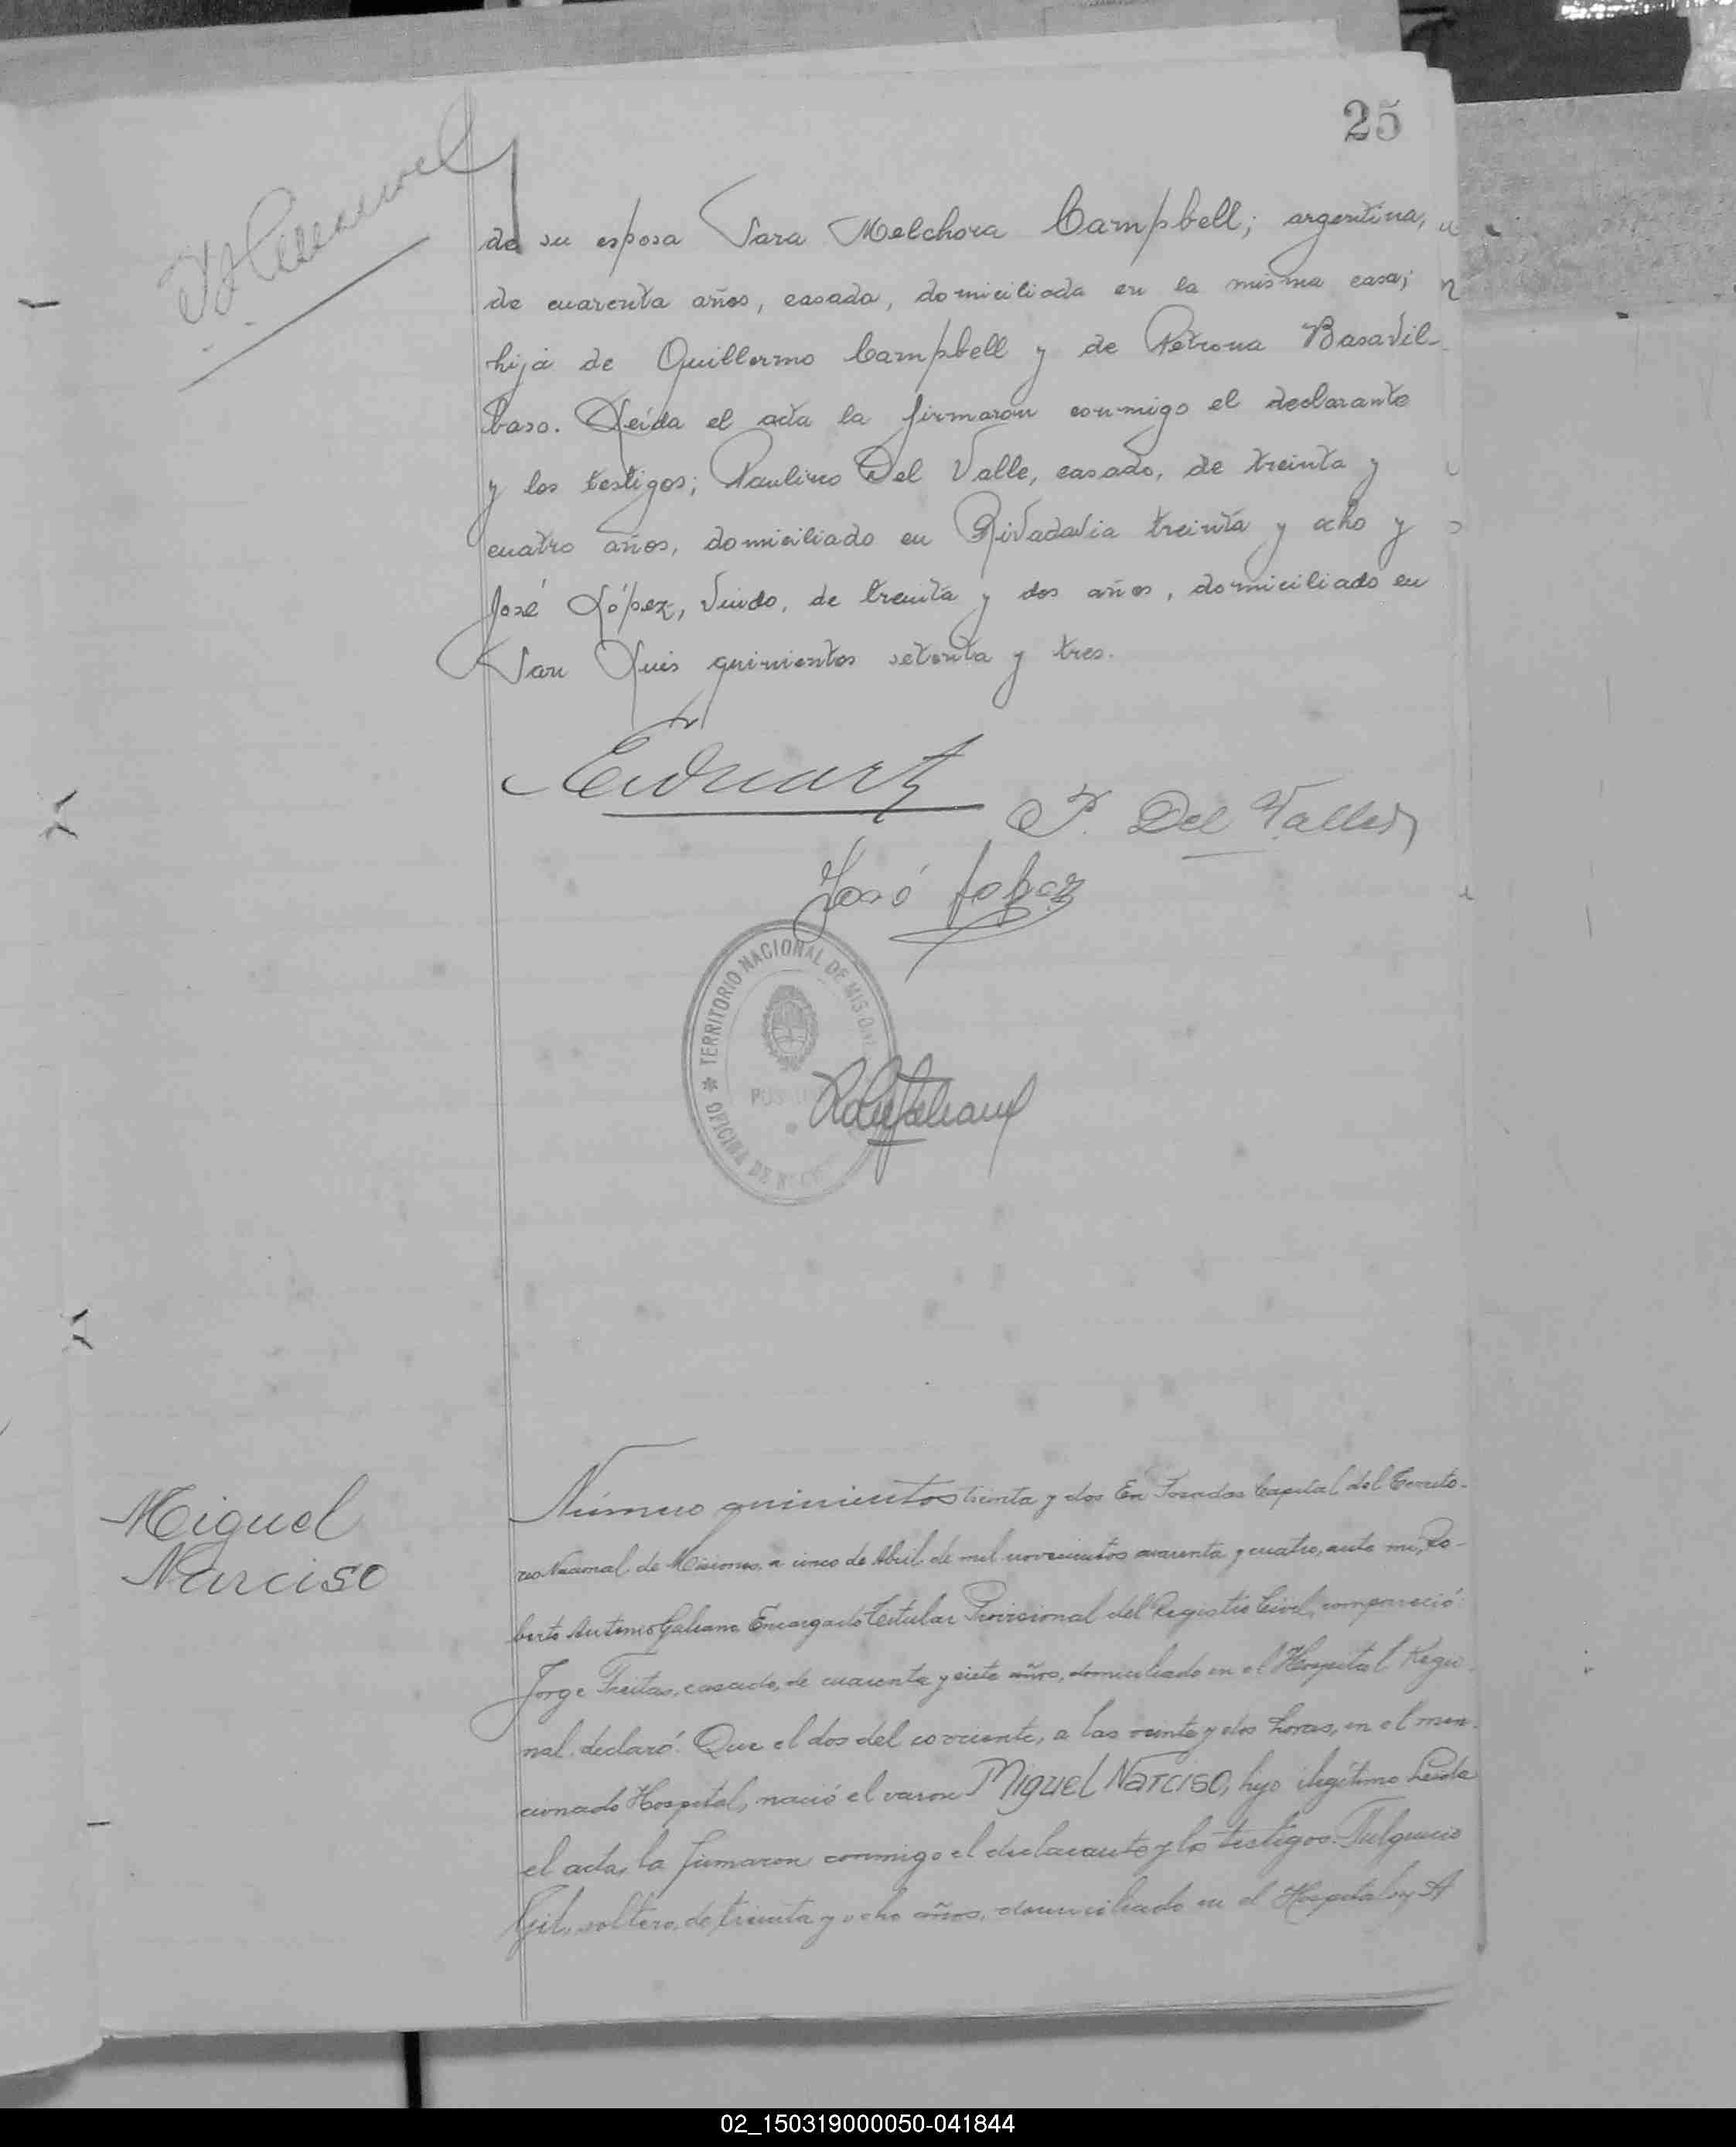 25
de su esposa Sara Melchora Campbell; argentina,
de cuarenta años, casada, domiciliada en la misma casa;
hija de Guillermo Campbell y de Petrona Basavil-
baso. Leída el acta la firmaron conmigo el declarante
y los testigos; Paulino Del Valle, casado, de treinta y
cuatro años, domiciliado en Rivadavia treinta y ocho y
José López, viudo, de treinta y dos años, domiciliado en
San Luis quinientos setenta y tres.
P. Del Valle
José López
TERRITORIO NACIONAL DE MISIONES
OFICINA DE
Miguel
Narciso
Número quinientos treinta y dos En Posadas Capital del Territo-
rio Nacional de Misiones, a cinco de Abril de mil novecientos cuarenta y cuatro, ante mi, Ro-
berto Antonio Galeano Encargado Titular Provisional del Registro Civil, compareció:
Jorge Freitas, casado, de cuarenta y siete años, domiciliado en el Hospital Regio-
nal, declaró: Que el dos del corriente, a las veinte y dos horas, en el men-
cionado Hospital, nació el varon Miguel Narciso, hijo ilegítimo Leída
el acta, la firmaron conmigo el declarante y los testigos: Fulgencio
Gil, soltero, de treinta y ocho años, domiciliado en el Hospital y A
02_150319000050-041844